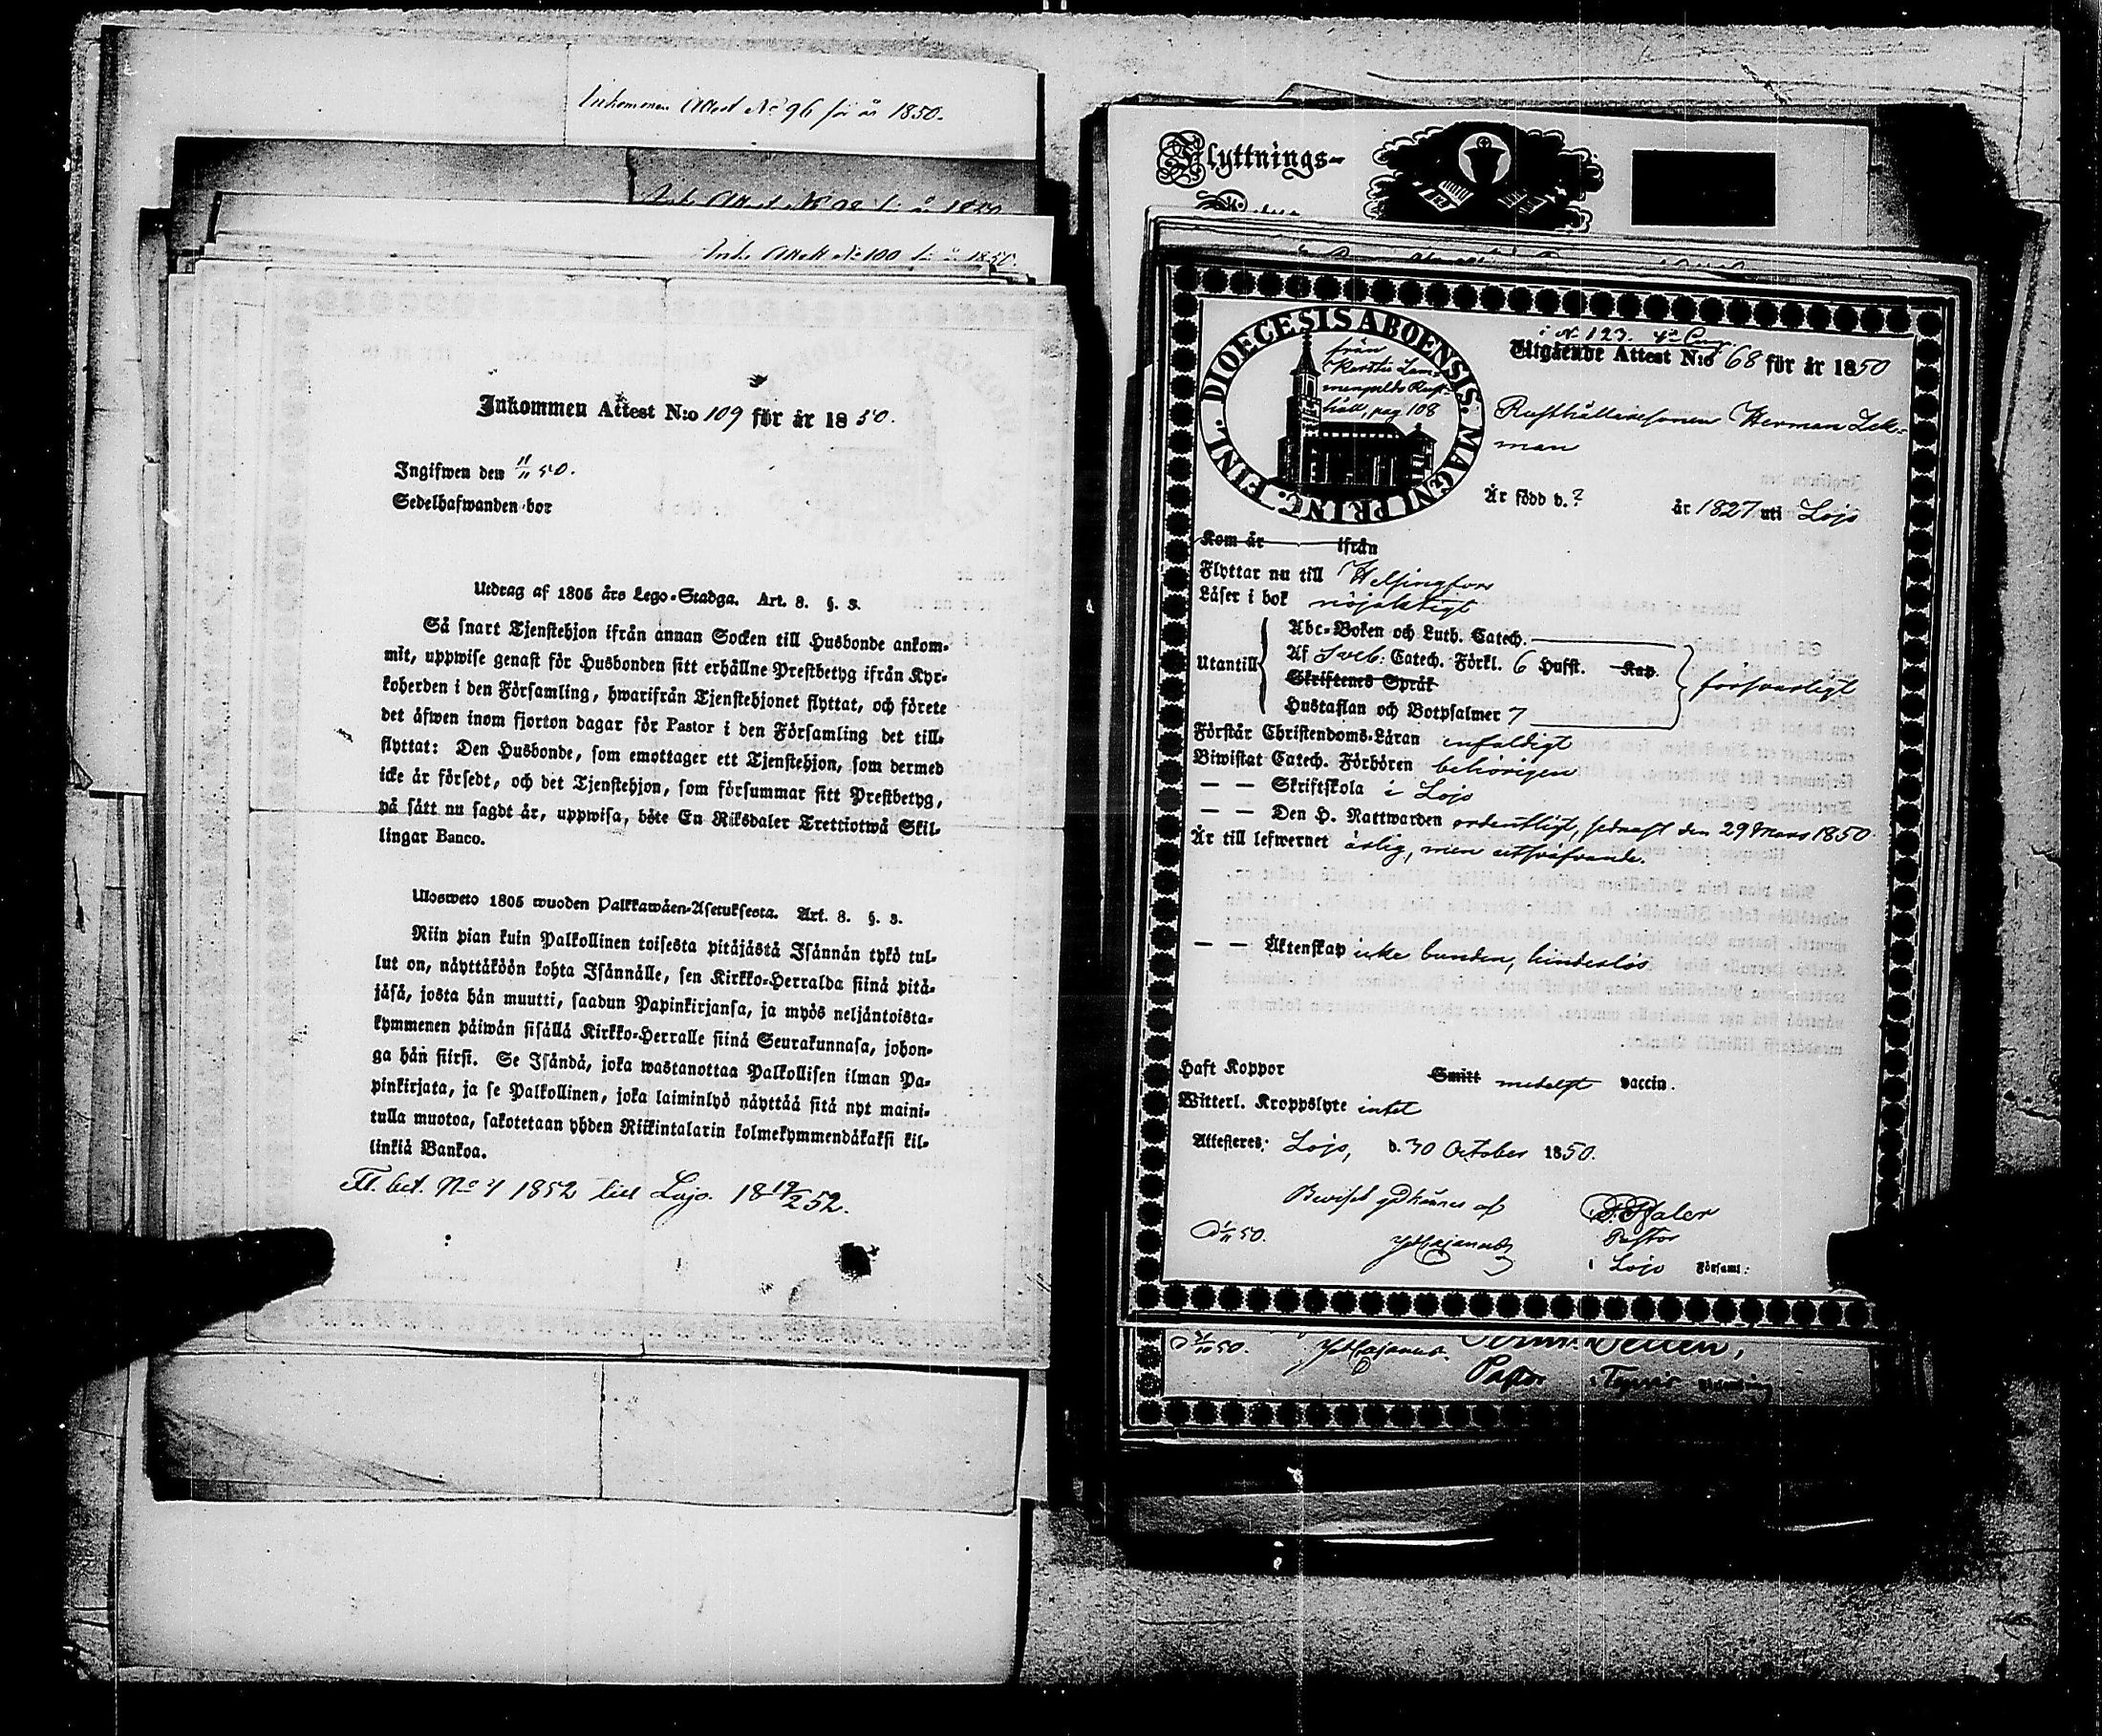 Inkommen Attest No 96 för år 1850.
Ink. Attest No 98 för år 1850
Ink. Attest No 100 för år 1850.
Inkommen Attest N:o 109 för år 1850.
Ingifwen den 11/11 50.
Sedelhafwanden bor
Utdrag af 1805 års Lego-Stadga. Art. 8. §. 3.
Så snart Tjenstehjon ifrån annan Socken till Husbonde ankom-
mit, uppwise genast för Husbonden sitt erhållne Prestbetyg ifrån Kyr-
koherden i den Församling, hwarifrån Tjenstehjonet flyttat, och förete
det äfwen inom fjorton dagar för Pastor i den Församling det till-
flyttat: Den Husbonde, som emottager ett Tjenstehjon, som dermed
icke är försedt, och det Tjenstehjon, som försummar sitt Prestbetyg,
på sätt nu sagdt är, uppwisa, böte En Riksdaler Trettiotwå Skil-
lingar Banco.
Ulosweto 1805 wuoden Palkkawäen-Asetuksesta. Art. 8. §. 3.
Niin pian kuin Palkollinen toisesta pitäjästä Isännän tykö tul-
lut on, näyttäköön kohta Isännälle, sen Kirkko-Herralda siinä pitä-
jäsä, josta hän muutti, saadun Papinkirjansa, ja myös neljäntoista-
kymmenen päiwän sisällä Kirkko-Herralle siinä Seurakunnasa, johon-
ga hän siirsi. Se Isändä, joka wastanottaa Palkollisen ilman Pa-
pinkirjata, ja se Palkollinen, joka laiminlyö näyttää sitä nyt maini-
tulla muotoa, sakotetaan yhden Riikintalarin kolmekymmendäkaksi kil-
linkiä Bankoa.
Fl. bet. No 4 1852 till Lojo. 18 19/2 52.
Flyttnings-
DIOECESIS ABOENSIS. MAGNI PRINC. FINL.
från
Rusth.
håll, pag 108
No 123.
Utgående Attest N:o 68 för år 1850
Rusthållaresonen Herman Lek-
man
Är född d. ? år 1827 uti Lojo
Kom år ifrån
Flyttar nu till Helsingfors
Läser i bok nöjaktigt
Utantill
Abc-Boken och Luth. Catech.
Af Sveb: Catech. Förkl. 6 Hufst. Kap.
Skriftenes Språk
Hustaflan och Botpsalmer 7
försvarligt
Förstår Christendoms-Läran enfaldigt
Biwistat Catech. Förhören behörigen
— — Skriftskola i Lojo
— — Den H. Nattwarden ordentligt, sednast den 29 Mars 1850
Är till lefwernet ärlig, men utsväfvande.
— — Äktenskap icke bunden, hinderlös
Haft Koppor Smitt medelst vaccin.
Witterl. Kroppslyte intet
Attesteres; Lojo, d. 30 October 1850.
Beviset godkännes af
Pastor
i Lojo Församl:
Pastor